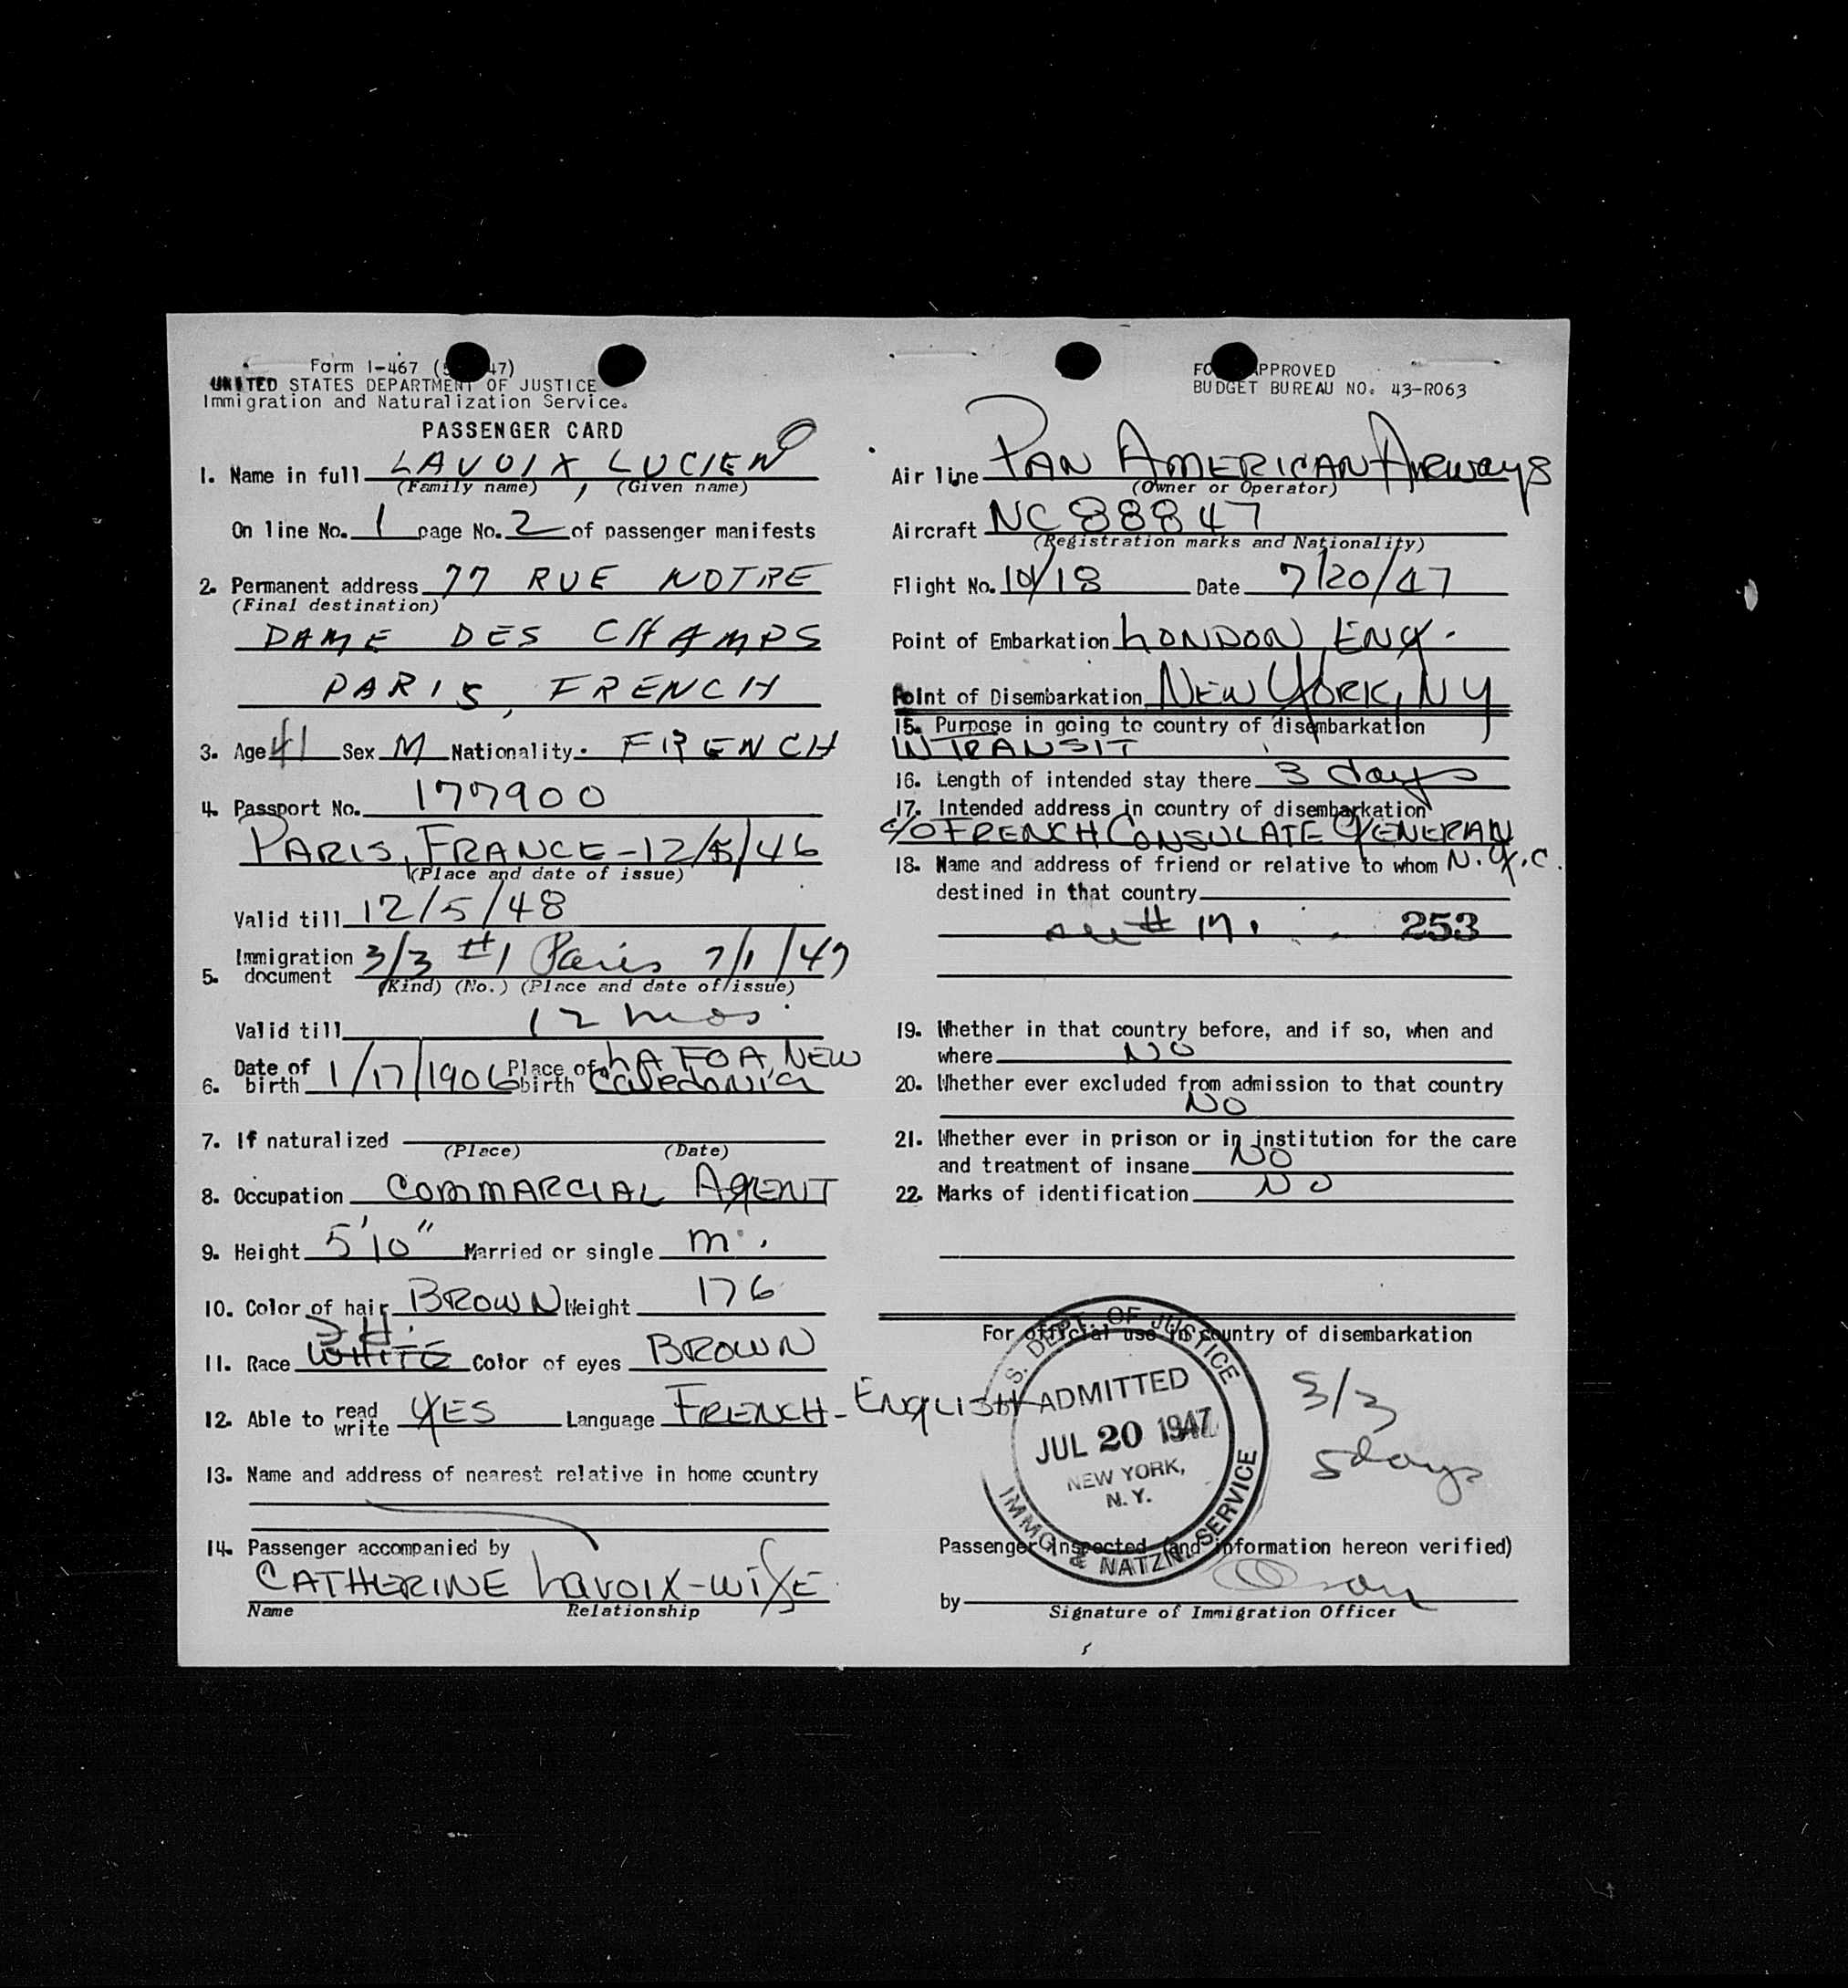 Form I-467 ( 47)
UNITED STATES DEPARTMENT OF JUSTICE
Immigration and Naturalization Service.
PASSENGER CARD
1. Name in full LAVOIX, LUCIEN
(Family name) (Given name)
On line No. 1 page No. 2 of passenger manifests
2. Permanent address 77 RUE NOTRE
(Final destination)
DAME DES CHAMPS
PARIS, FRENCH
3. Age 41 Sex M Nationality. FRENCH
4. Passport No. 177900
PARIS, FRANCE-12/5/46
(Place and date of issue)
Valid till 12/5/48
5. Immigration document 3/3 #1 Paris 7/1/47
(Kind) (No.) (Place and date of issue)
Valid till 12 mos.
6. Date of birth 1/17/1906 Place of birth LA FOA, NEW Caledonia
7. If naturalized
(Place) (Date)
8. Occupation COMMARCIAL AGENT
9. Height 5'10" Married or single M.
10. Color of hair BROWN Weight 176
11. Race WHITE Color of eyes BROWN
12. Able to read write YES Language FRENCH-ENGLISH
13. Name and address of nearest relative in home country
14. Passenger accompanied by
CATHERINE LAVOIX-WIFE
Name Relationship
FO APPROVED
BUDGET BUREAU NO. 43-R063
Air line PAN AMERICAN AIRways
(Owner or Operator)
Aircraft NC 88847
(Registration marks and Nationality)
Flight No. 101/18 Date 7/20/47
Point of Embarkation LONDON, ENG.
Point of Disembarkation NEW YORK, NY
15. Purpose in going to country of disembarkation
IN TRANSIT
16. Length of intended stay there 3 days
17. Intended address in country of disembarkation
c/o FRENCH CONSULATE GENERAL
18. Name and address of friend or relative to whom N.Y.C.
destined in that country
see # 17. 253
19. Whether in that country before, and if so, when and
where NO
20. Whether ever excluded from admission to that country
NO
21. Whether ever in prison or in institution for the care
and treatment of insane NO
22. Marks of identification NO
For official use in country of disembarkation
U.S. DEPT. OF JUSTICE
ADMITTED
JUL 20 1947
NEW YORK,
N.Y.
IMMG. & NATZN. SERVICE
3/3
5 days
Passenger inspected (and information hereon verified)
by
Signature of Immigration Officer